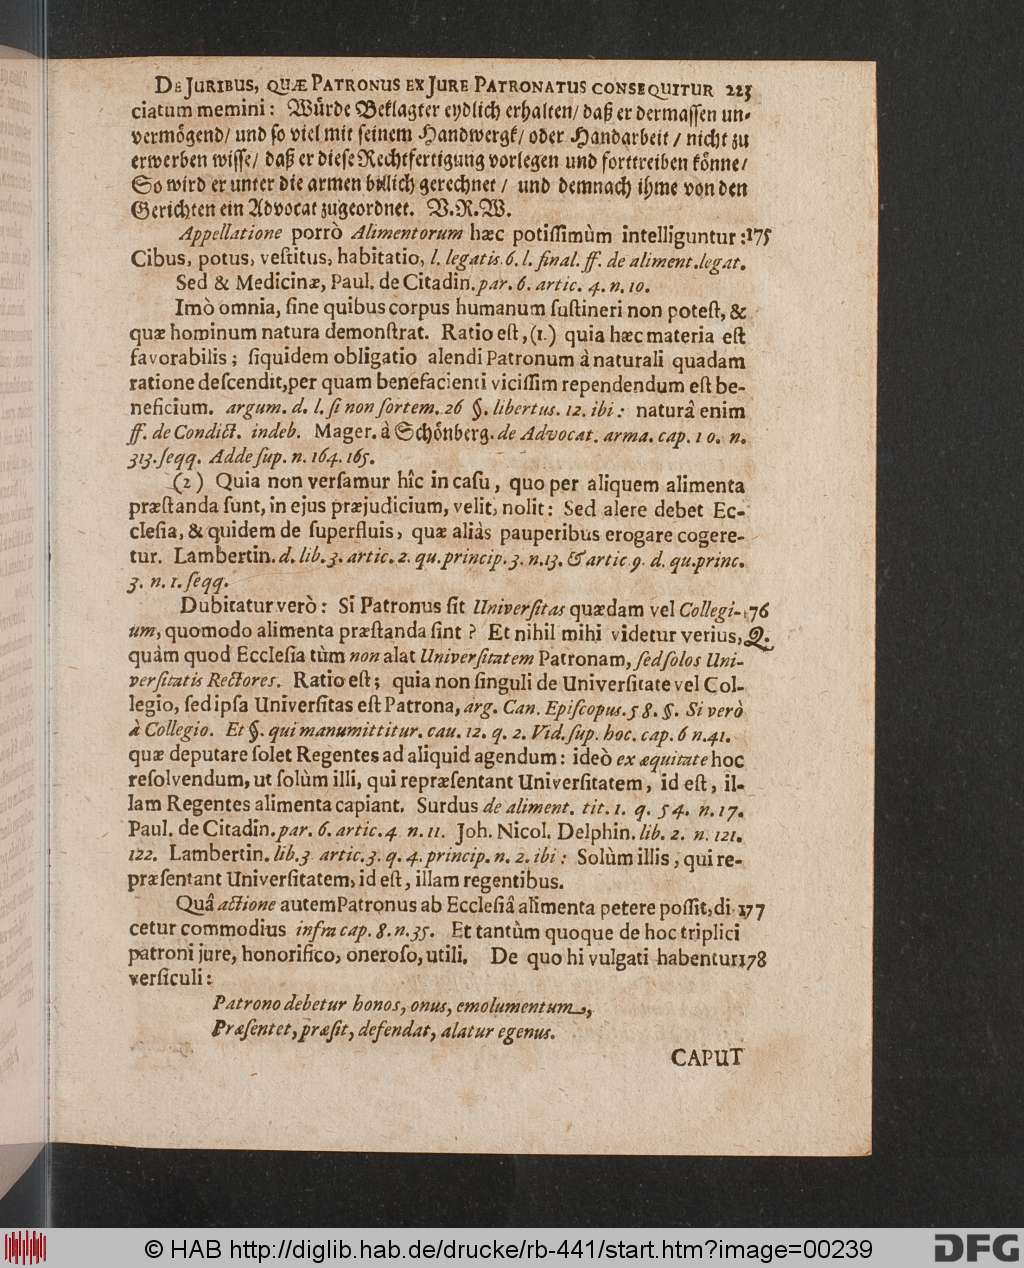 DE JURIBUS, QUÆ PATRONUS EX JURE PATRONATUS CONSEQUITUR 223
ciatum memini: Würde Beklagter eydlich erhalten/ daß er dermaſſen un-
vermögend/ und ſo viel mit ſeinem Handwergk/ oder Handarbeit / nicht zu
erwerben wiſſe/ daß er dieſe Rechtfertigung vorlegen und forttreiben könne/
So wird er unter die armen billich gerechnet / und demnach ihme von den
Gerichten ein Advocat zugeordnet. V.R.W.
Appellatione porrò Alimentorum hæc potiſſimùm intelliguntur: 175
Cibus, potus, veſtitus, habitatio, l. legatis. 6. l. final. ff. de aliment. legat.
Sed & Medicinæ, Paul. de Citadin. par. 6. artic. 4. n. 10.
Imò omnia, ſine quibus corpus humanum ſuſtineri non poteſt, &
quæ hominum natura demonſtrat. Ratio eſt, (1.) quia hæc materia eſt
favorabilis; ſiquidem obligatio alendi Patronum à naturali quadam
ratione deſcendit, per quam benefacienti viciſſim rependendum eſt be-
neficium. argum. d. l. ſi non ſortem. 26 §. libertus. 12. ibi: naturâ enim
ff. de Condict. indeb. Mager. à Schönberg. de Advocat. arma. cap. 10. n.
313. ſeqq. Adde ſup. n. 164. 165.
(2) Quia non verſamur hîc in caſu, quo per aliquem alimenta
præſtanda ſunt, in ejus præjudicium, velit, nolit: Sed alere debet Ec-
cleſia, & quidem de ſuperfluis, quæ aliàs pauperibus erogare cogere-
tur. Lambertin. d. lib. 3. artic. 2. qu. princip. 3. n. 13. & artic 9. d. qu. princ.
3. n. 1. ſeqq.
Dubitatur verò: Si Patronus ſit Univerſitas quædam vel Collegi- 176
um, quomodo alimenta præſtanda ſint? Et nihil mihi videtur verius, Q.
quàm quod Eccleſia tùm non alat Univerſitatem Patronam, ſed ſolos Uni-
verſitatis Rectores. Ratio eſt; quia non ſinguli de Univerſitate vel Col-
legio, ſed ipſa Univerſitas eſt Patrona, arg. Can. Epiſcopus. 58. §. Si verò
à Collegio. Et §. qui manumittitur. cau. 12. q. 2. Vid. ſup. hoc. cap. 6 n. 41.
quæ deputare ſolet Regentes ad aliquid agendum: ideò ex æquitate hoc
reſolvendum, ut ſolùm illi, qui repræſentant Univerſitatem, id eſt, il-
lam Regentes alimenta capiant. Surdus de aliment. tit. 1. q. 54. n. 17.
Paul. de Citadin. par. 6. artic. 4 n. 11. Joh. Nicol. Delphin. lib. 2. n. 121.
122. Lambertin. lib. 3 artic. 3. q. 4. princip. n. 2. ibi: Solùm illis, qui re-
præſentant Univerſitatem, id eſt, illam regentibus.
Quâ actione autem Patronus ab Eccleſiâ alimenta petere poſſit, di- 177
cetur commodius infra cap. 8. n. 35. Et tantùm quoque de hoc triplici
patroni jure, honorifico, oneroſo, utili. De quo hi vulgati habentur 178
verſiculi:
Patrono debetur honos, onus, emolumentum,
Præſentet, præſit, defendat, alatur egenus.
CAPUT
© HAB http://diglib.hab.de/drucke/rb-441/start.htm?image=00239
DFG